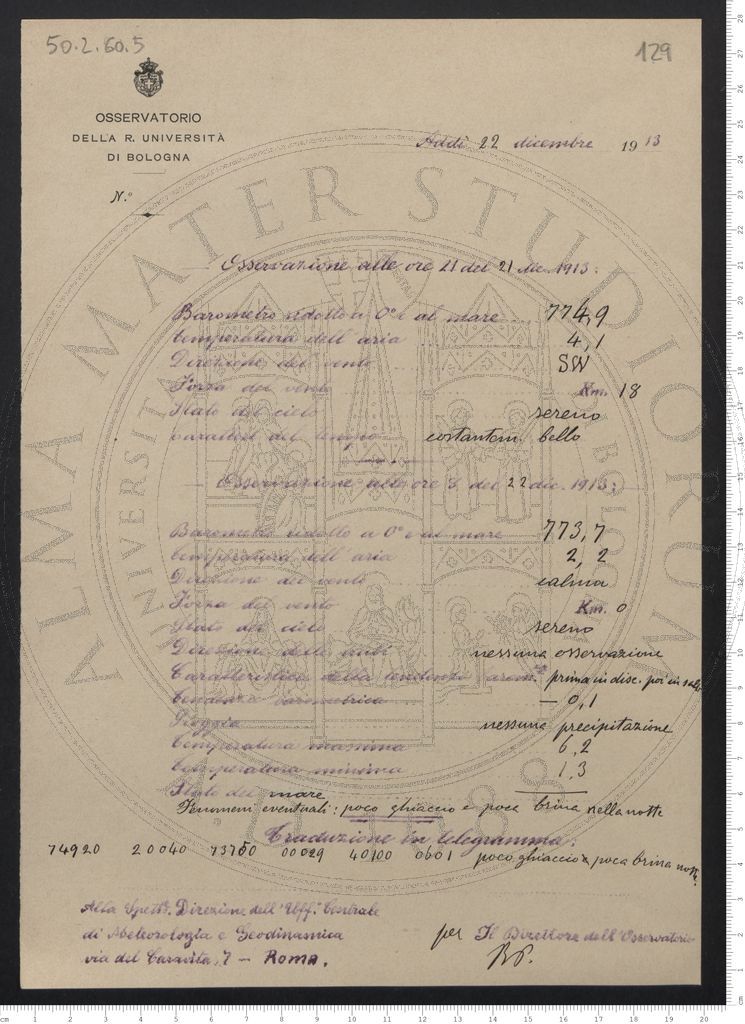 50.2.60.5
129
OSSERVATORIO
DELLA R. UNIVERSITÀ
DI BOLOGNA
N.°
Addì 22 dicembre 1913
Osservazione alle ore 21 del 21 dic. 1913:
Barometro ridotto a 0° e al mare 774,9
temperatura dell'aria 4,1
Direzione del vento SW
Forza del vento Km. 18
Stato del cielo sereno
Caratteri del tempo costantem. bello
Osservazione alle ore 8 del 22 dic. 1913:
Barometro ridotto a 0° e al mare 773,7
temperatura dell'aria 2,2
Direzione del vento calma
Forza del vento Km. 0
Stato del cielo sereno
Direzione delle nubi nessuna osservazione
Caratteristica della tendenza prima in disc. poi in
tendenza barometrica – 0,1
Pioggia nessuna precipitazione
temperatura massima 6,2
temperatura minima 1,3
Stato del mare
Fenomeni eventuali: poco ghiaccio e poca brina nella notte
Traduzione in telegramma:
74920 20040 73700 00029 40100 0601 poco ghiaccio poca brina
Alla Spett. Direzione dell'Uff. Centrale
di Meteorologia e Geodinamica
via del Caravita, 7 – Roma.
per Il Direttore dell'Osservatorio
ALMA MATER STUDIORUM